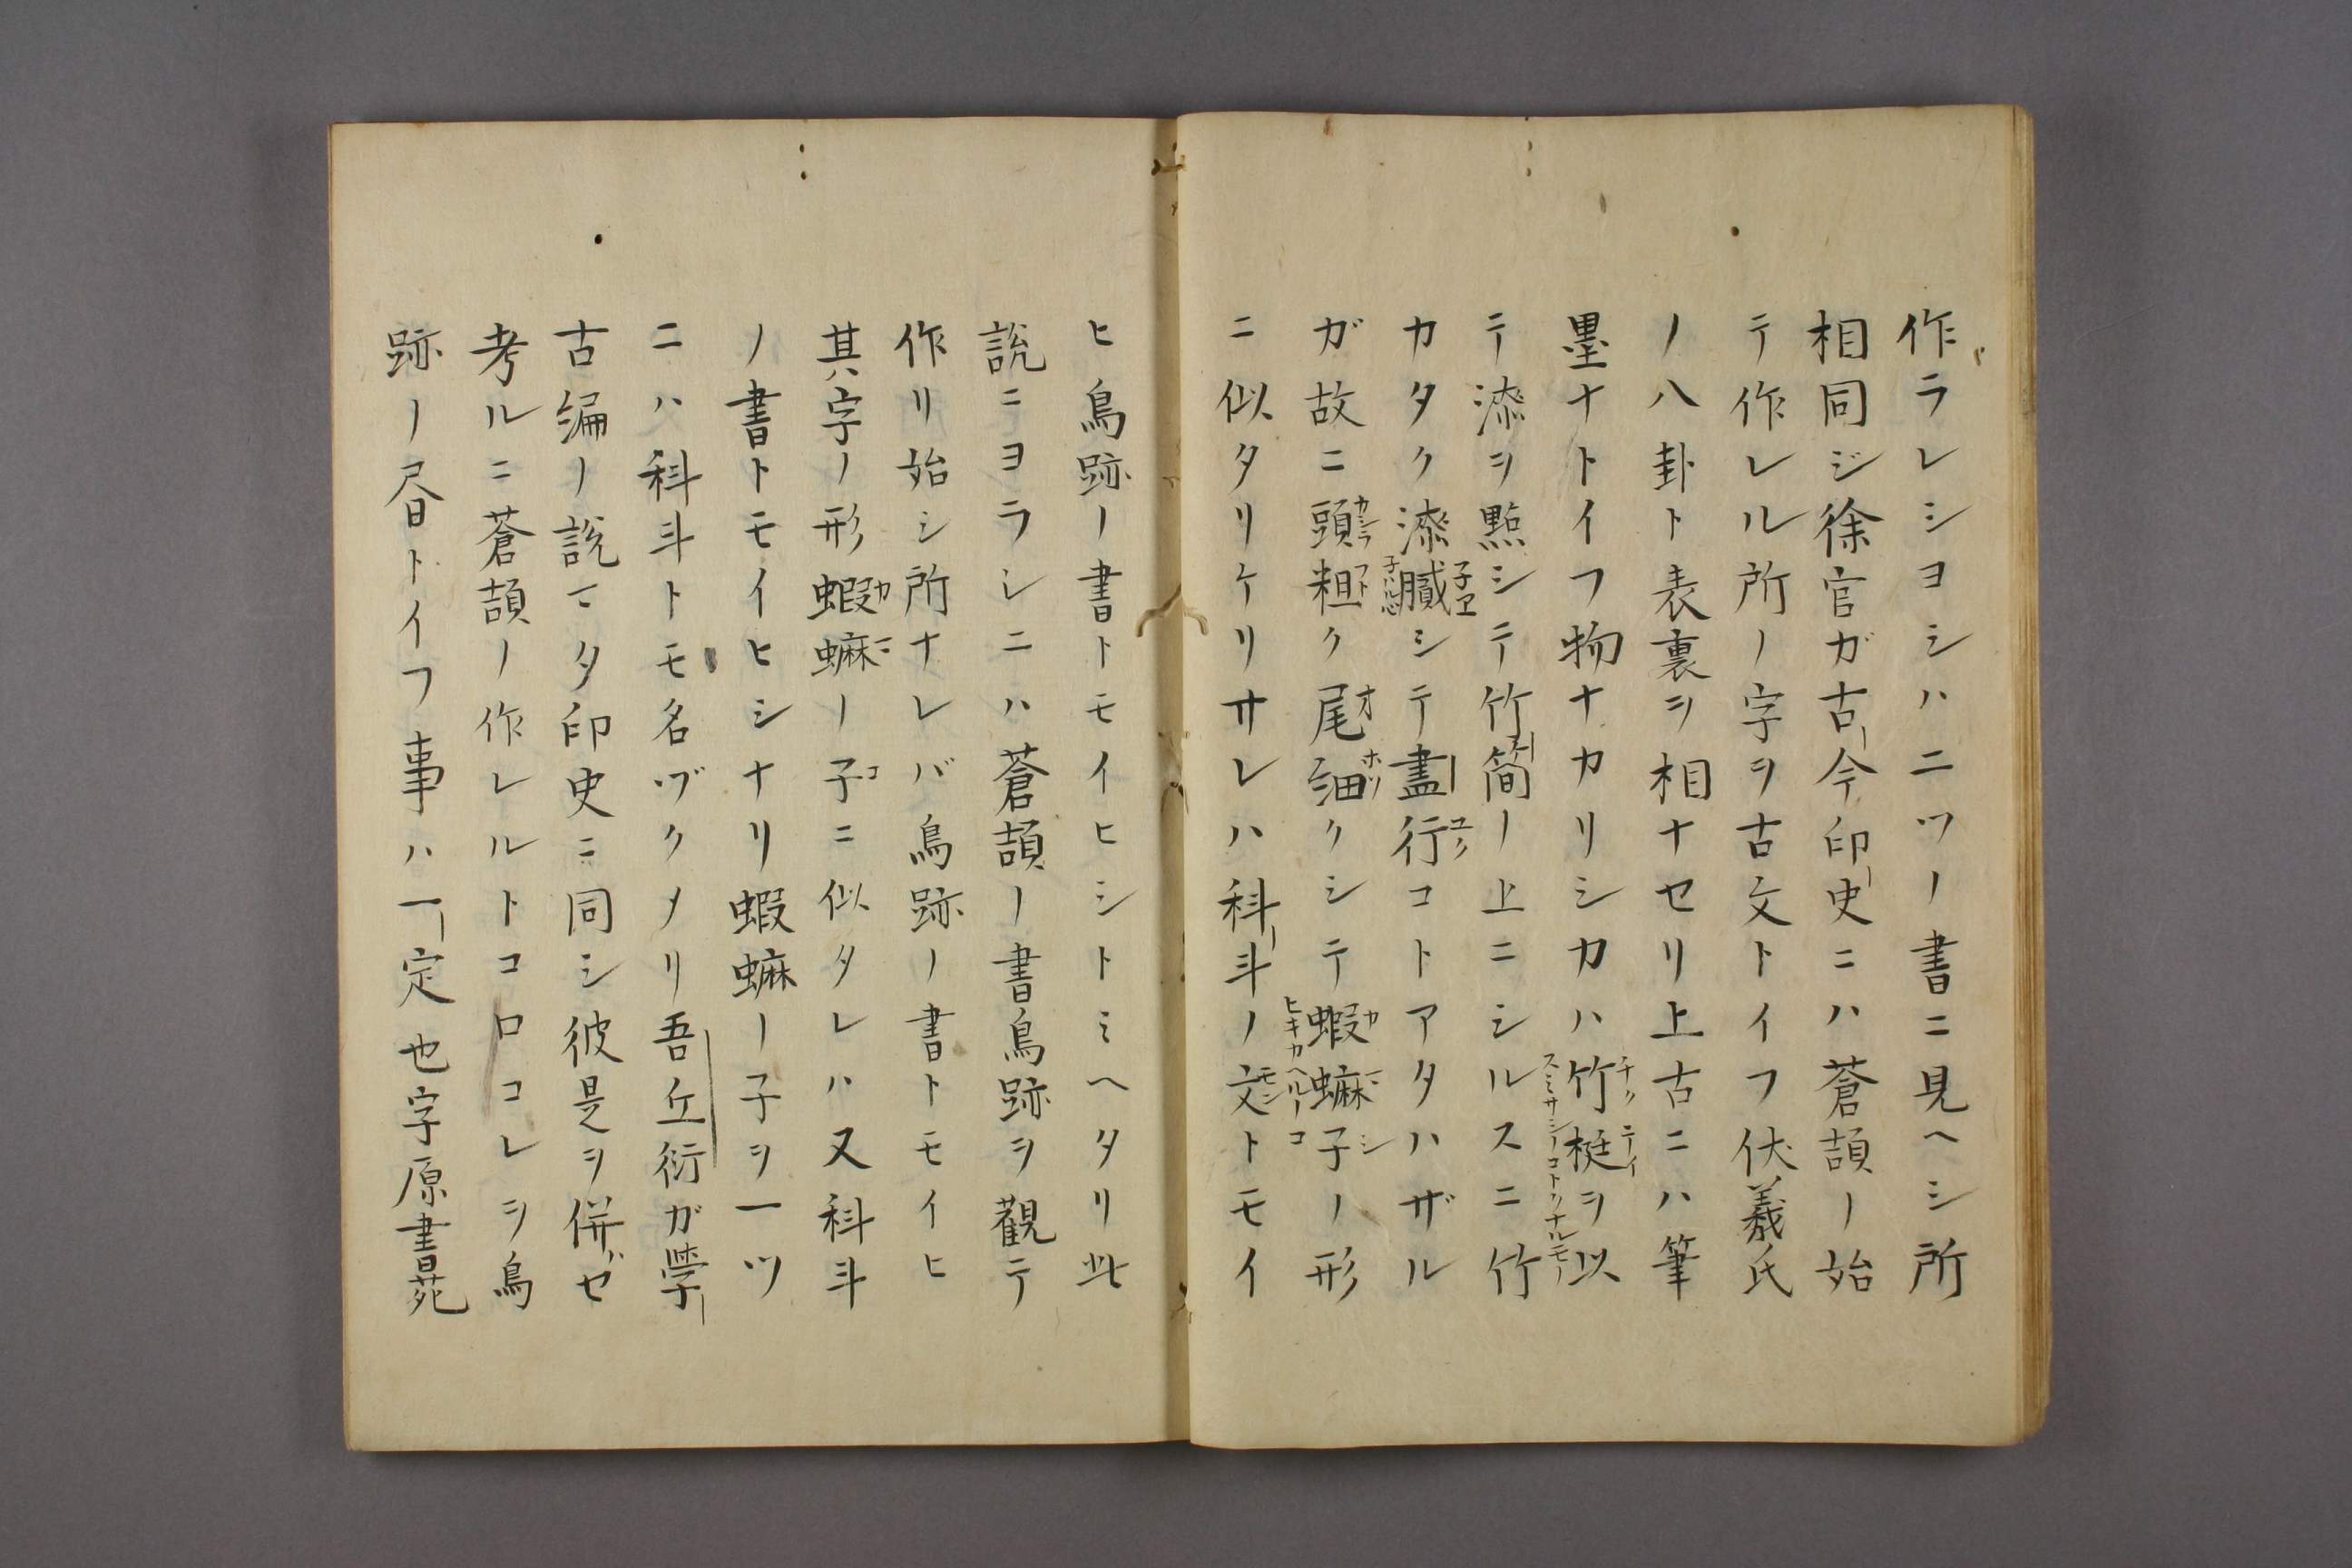 作ラレシヨシハ二ツノ書ニ見ヘシ所
相同ジ徐官ガ古今印史ニハ蒼頡ノ始
テ作レル所ノ字ヲ古文トイフ伏羲氏
ノ八卦ト表裏ヲ相ナセリ上古ニハ筆
墨ナトイフ物ナカリシカハ竹梃ヲ以
テ漆ヲ點シテ竹簡ノ上ニシルスニ竹
カタク漆膩シテ畫行コトアタハザル
ガ故ニ頭粗ク尾細クシテ蝦蟆子ノ形
ニ似タリケリサレハ科斗ノ文トモイ
ヒ鳥跡ノ書トモイヒシトミヘタリ此
説ニヨラシニハ蒼頡ノ書鳥跡ヲ觀テ
作リ始シ所ナレバ鳥跡ノ書トモイヒ
其字ノ形蝦蟆ノ子ニ似タレハ又科斗
ノ書トモイヒシナリ蝦蟆ノ子ヲ一ツ
ニハ科斗トモ名ヅクメリ吾丘衍ガ學
古編ノ説マタ印史ニ同シ彼是ヲ併ゼ
考ルニ蒼頡ノ作レルトコロコレヲ鳥
跡ノ昏トイフ事ハ一定也字原書苑